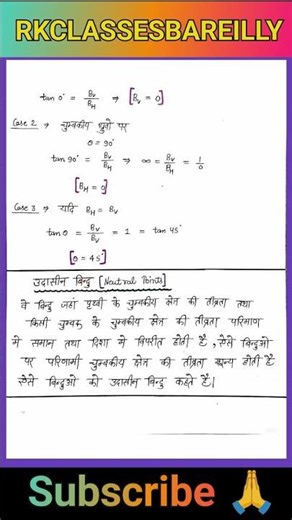 RKCLASSESBAREILLY
tan 0° = Bv/BH ⇒ [Bv = 0]
Case 2 → चुम्बकीय ध्रुवो पर
θ = 90°
tan 90° = Bv/BH ⇒ ∞ = Bv/BH = 1/0
[BH = 0]
Case 3 → यदि BH = Bv
tan θ = Bv/Bv = 1 = tan 45°
[θ = 45°]
उदासीन बिन्दु [Neutral Points]
वे बिन्दु जहां पृथ्वी के चुम्बकीय क्षेत्र की तीव्रता तथा
किसी चुम्बक के चुम्बकीय क्षेत्र की तीव्रता परिमाण
में समान तथा दिशा में विपरीत होती है, ऐसे बिन्दुओ
पर परिणामी चुम्बकीय क्षेत्र की तीव्रता शून्य होती है
ऐसे बिन्दुओ को उदासीन बिन्दु कहते है।
Subscribe 🙏